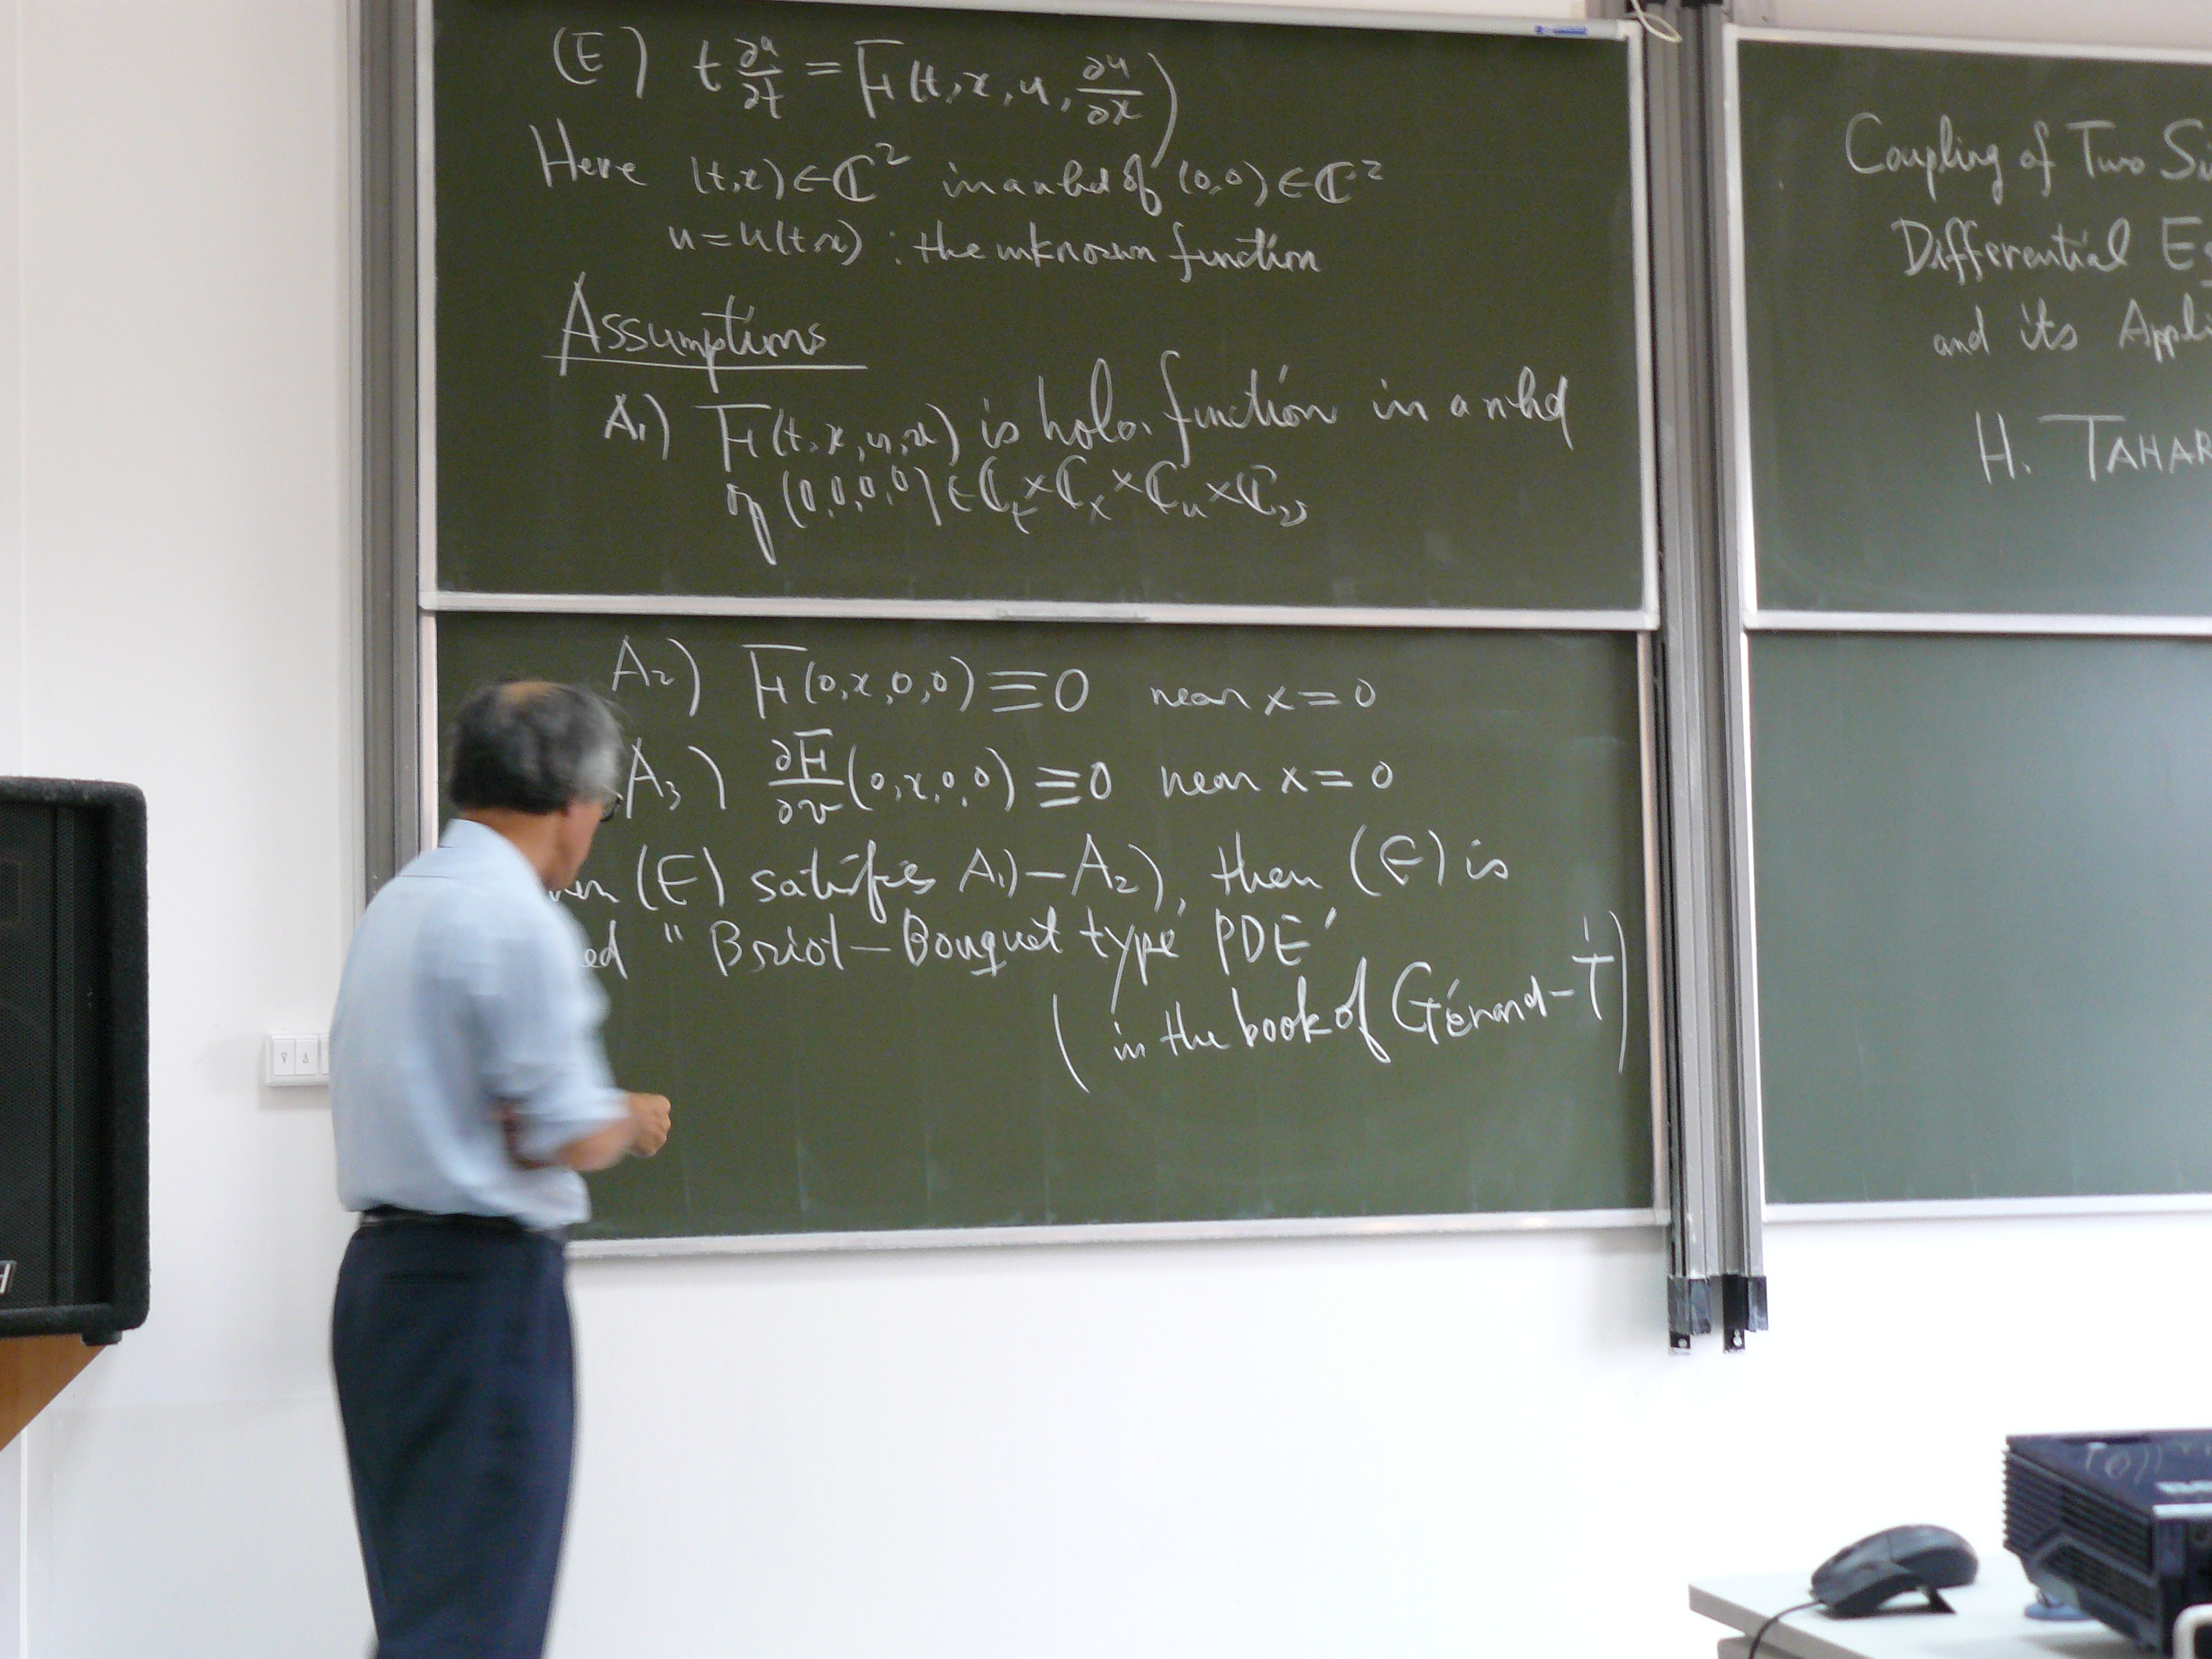 (E) t ∂u/∂t = F(t, x, u, ∂u/∂x)
Here (t,x) ∈ ℂ² in a nbd of (0,0) ∈ ℂ²
u = u(t,x) : the unknown function
Assumptions
A₁) F(t,x,u,v) is holo. function in a nbd
of (0,0,0,0) ∈ ℂₜ × ℂₓ × ℂᵤ × ℂᵥ
A₂) F(0,x,0,0) ≡ 0 near x = 0
A₃) ∂F/∂v (0,x,0,0) ≡ 0 near x = 0
(E) satisfies A₁) – A₂), then (E) is
"Briot–Bouquet type PDE"
(in the book of Gérard–T)
Coupling of Two Si
Differential Eq
and its Appli
H. TAHAR